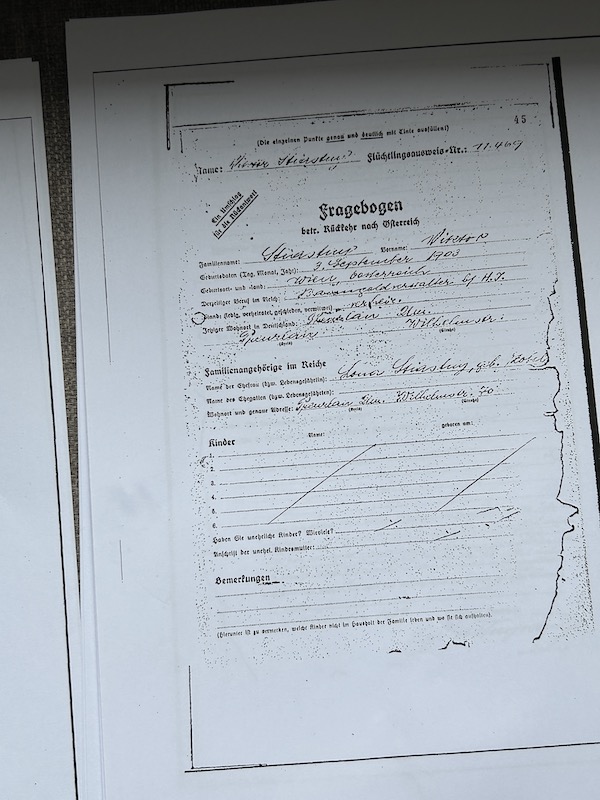 45
(Die einzelnen Punkte genau und deutlich mit Tinte ausfüllen!)
Name: Viktor Flüchtlingsausweis-Nr.: 11.469
Ein Umschlag
für die Rückantwort
Fragebogen
betr. Rückkehr nach Österreich
Familienname: Vorname: Viktor
Geburtsdaten (Tag, Monat, Jahr): 3. September 1903
Geburtsort und -land: Wien, Oesterreich
Derzeitiger Beruf im Reich:
Stand: (ledig, verheiratet, geschieden, verwitwet)
Jetziger Wohnort in Deutschland:
Wilhelmstr.
(Kreis) (Straße)
Familienangehörige im Reiche
Name der Ehefrau (bzw. Lebensgefährtin): geb.
Name des Ehegatten (bzw. Lebensgefährten):
Wohnort und genaue Adresse: Wilhelmstr. 70
(Kreis) (Straße)
Kinder Name: geboren am:
1.
2.
3.
4.
5.
6.
Haben Sie uneheliche Kinder? Wieviele?
Anschrift der unehel. Kindesmutter:
Bemerkungen
(Hierunter ist zu vermerken, welche Kinder nicht im Haushalt der Familie leben und wo sie sich aufhalten).